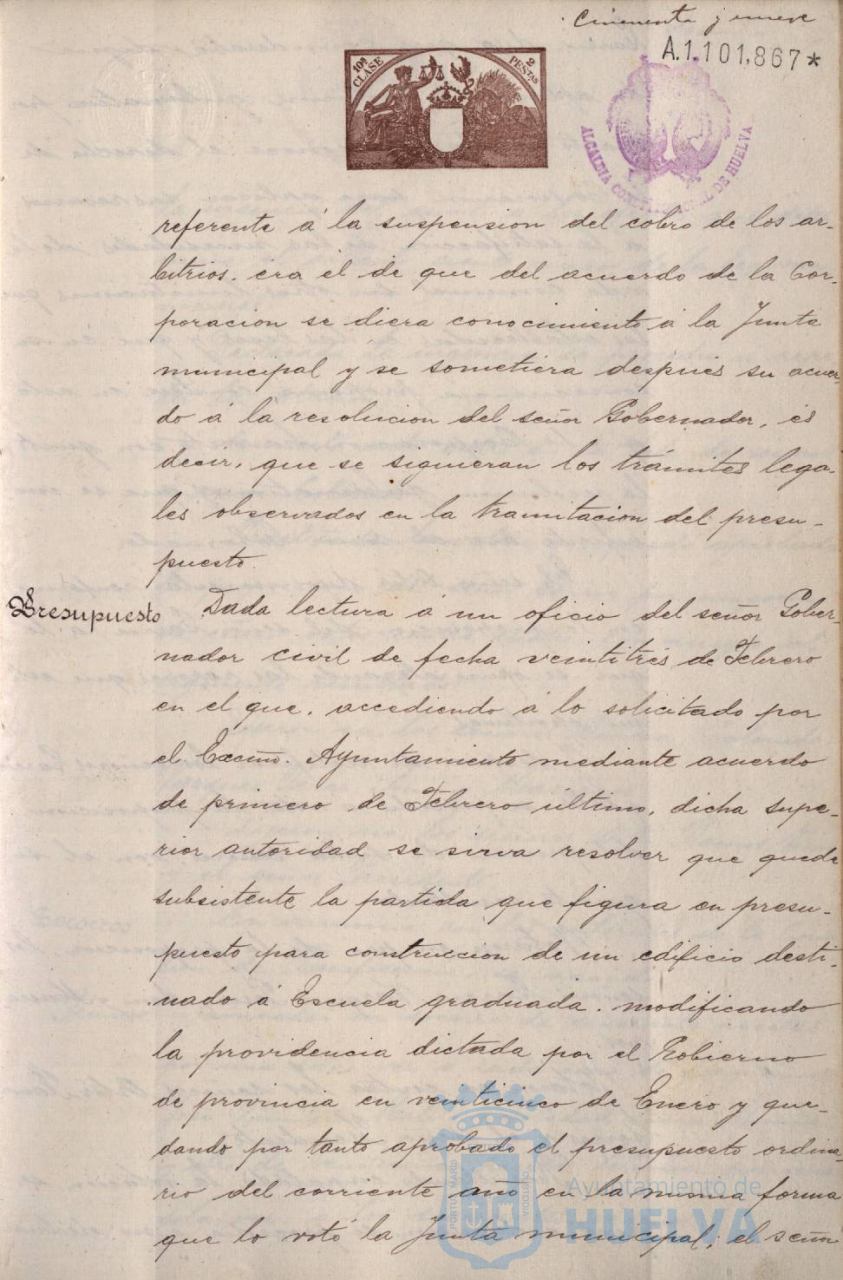 Cincuenta y nueve
A.1.101,867*
10ª CLASE
2 PESTAS
ALCALDIA CONSTITUCIONAL DE HUELVA
referente á la suspension del cobro de los ar-
bitrios, era el de que del acuerdo de la Cor-
poracion se diera conocimiento á la Junta
municipal y se sometiera despues su acuer-
do á la resolucion del señor Gobernador, es
decir, que se siguieran los trámites lega-
les observados en la tramitacion del presu-
puesto.
Presupuesto
Dada lectura á un oficio del señor Gober-
nador civil de fecha veintitrés de Febrero
en el que, accediendo á lo solicitado por
el Excmo. Ayuntamiento mediante acuerdo
de primero de Febrero último, dicha supe-
rior autoridad se sirva resolver que quede
subsistente la partida que figura en presu-
puesto para construccion de un edificio desti-
nado á Escuela graduada, modificando
la providencia dictada por el Gobierno
de provincia en veinticinco de Enero y que-
dando por tanto aprobado el presupuesto ordina-
rio del corriente año en la misma forma
que lo votó la Junta municipal; el señor
Ayuntamiento de
HUELVA